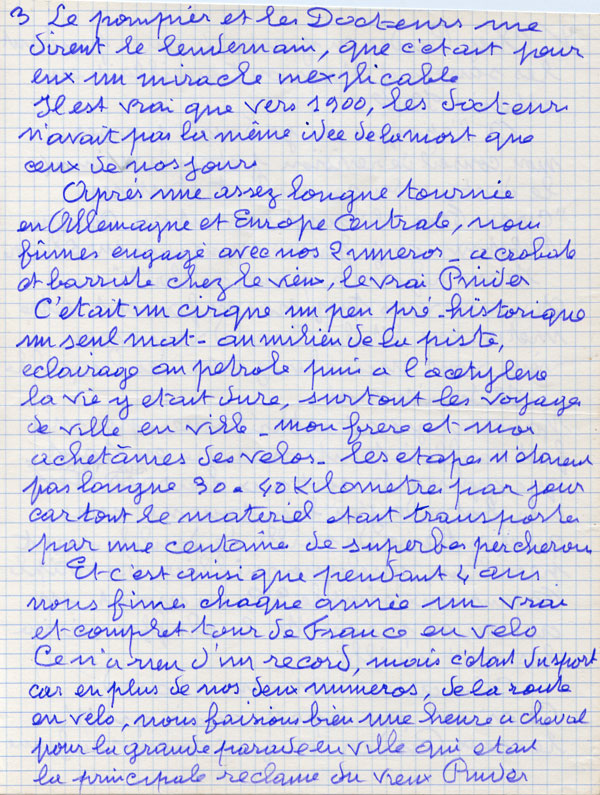 3 Le pompier et les Docteurs me
dirent le lendemain, que c'etait pour
eux un miracle inexplicable
Il est vrai que vers 1900, les docteurs
n'avait pas la même idee de la mort que
ceux de nos jours
Après une assez longue tournée
en Allemagne et Europe Centrale, nous
fûmes engagé avec nos 2 numeros - acrobate
et barriste chez le vieux, le vrai Pinder
C'était un cirque un peu pré-historique
un seul mat - au milieu de la piste,
eclairage au petrole puis a l'acetylene
la vie y etait dure, surtout les voyages
de ville en ville - mon frere et moi
achetâmes des velos - les etapes n'étaient
pas longue 30 a 40 Kilometres par jour
car tout le materiel etait transporté
par une centaine de superbes percherons
Et c'est ainsi que pendant 4 ans
nous fîmes chaque année un vrai
et complet tour de France en velo
Ce n'a rien d'un record, mais c'était du sport
car en plus de nos deux numeros, de la route
en velo, nous faisions bien une heure a cheval
pour la grande parade en ville qui etait
la principale reclame du vieux Pinder